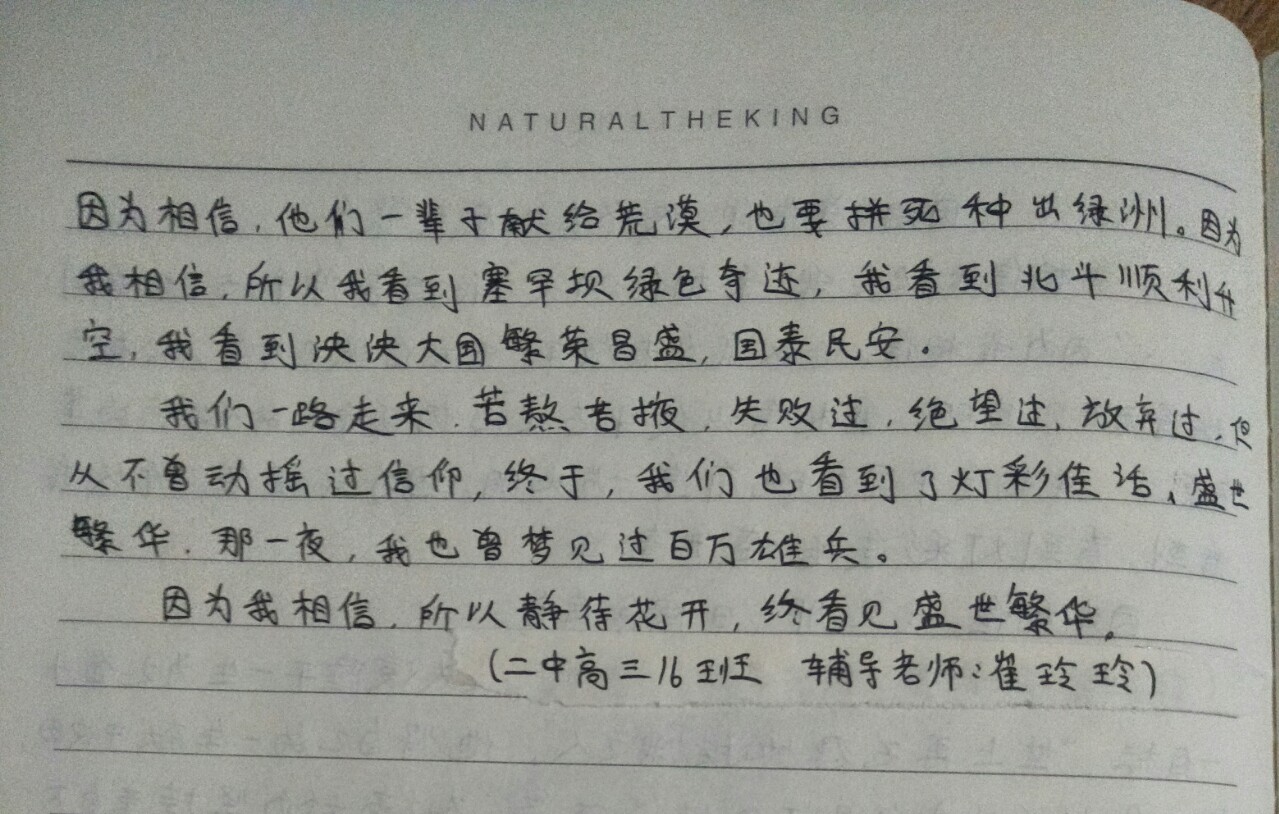 NATURALTHEKING
因为相信,他们一辈子献给荒漠,也要拼死种出绿洲。因为
我相信,所以我看到塞罕坝绿色奇迹,我看到北斗顺利升
空,我看到泱泱大国繁荣昌盛,国泰民安.
我们一路走来.苦熬苦掖,失败过,绝望过,放弃过,但
从不曾动摇过信仰,终于,我们也看到了灯彩佳话、盛世
繁华.那一夜,我也曾梦见过百万雄兵。
因为我相信,所以静待花开,终看见盛世繁华.
(二中高三16班 辅导老师:崔玲玲)